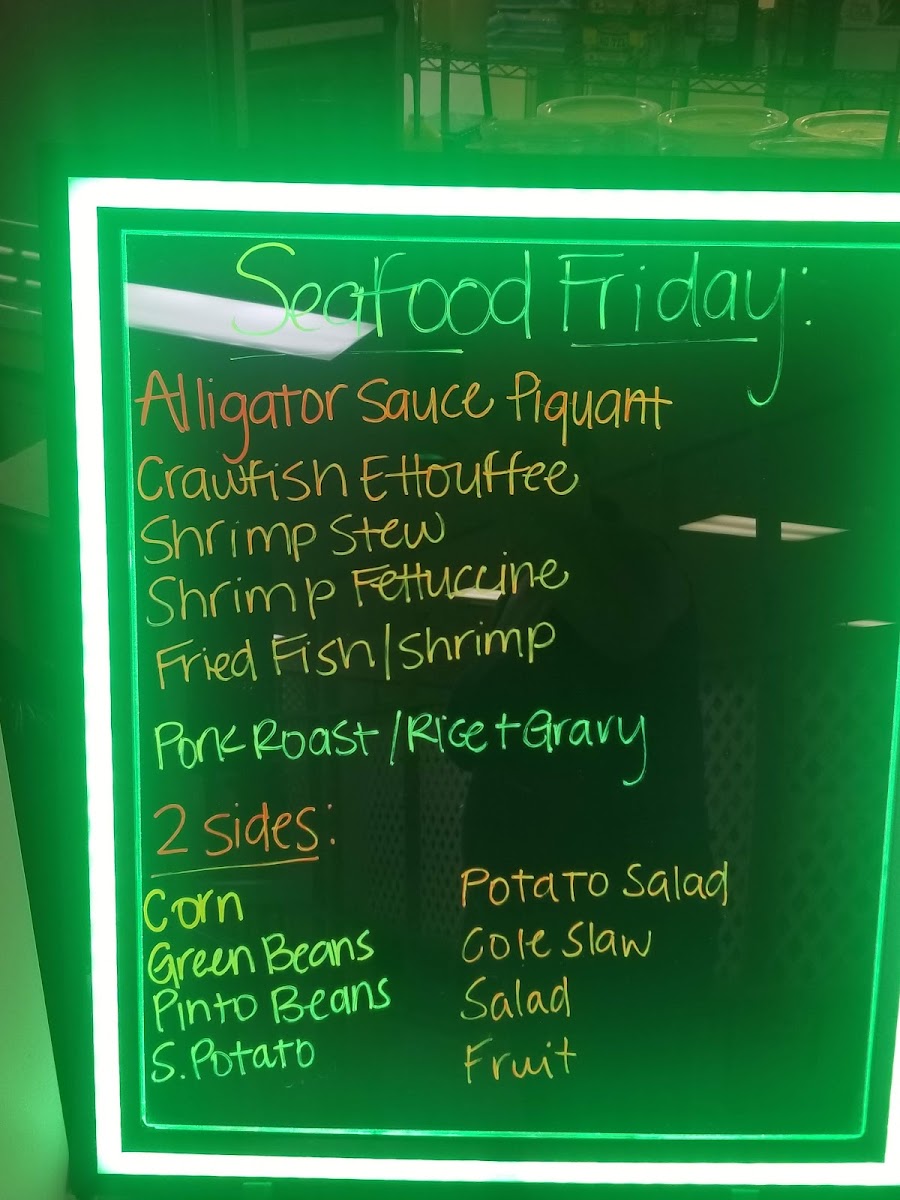 Seafood Friday:
Alligator Sauce Piquant
Crawfish Ettouffee
Shrimp Stew
Shrimp Fettuccine
Fried Fish/Shrimp
Pork Roast/Rice+Gravy
2 sides:
Corn
Green Beans
Pinto Beans
S. Potato
Potato Salad
Cole Slaw
Salad
Fruit